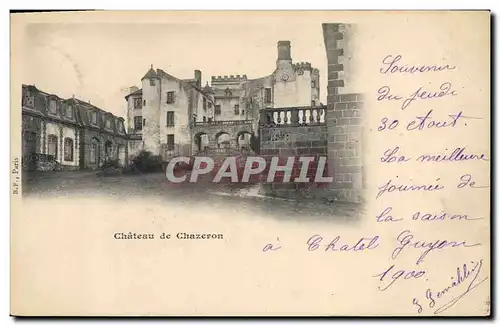 Souvenir
du jeudi
30 Août.
La meilleure
journée de
la saison
à Chatel Guyon
1900.
CPARAMA.COM
Château de Chazeron
B.F., Paris